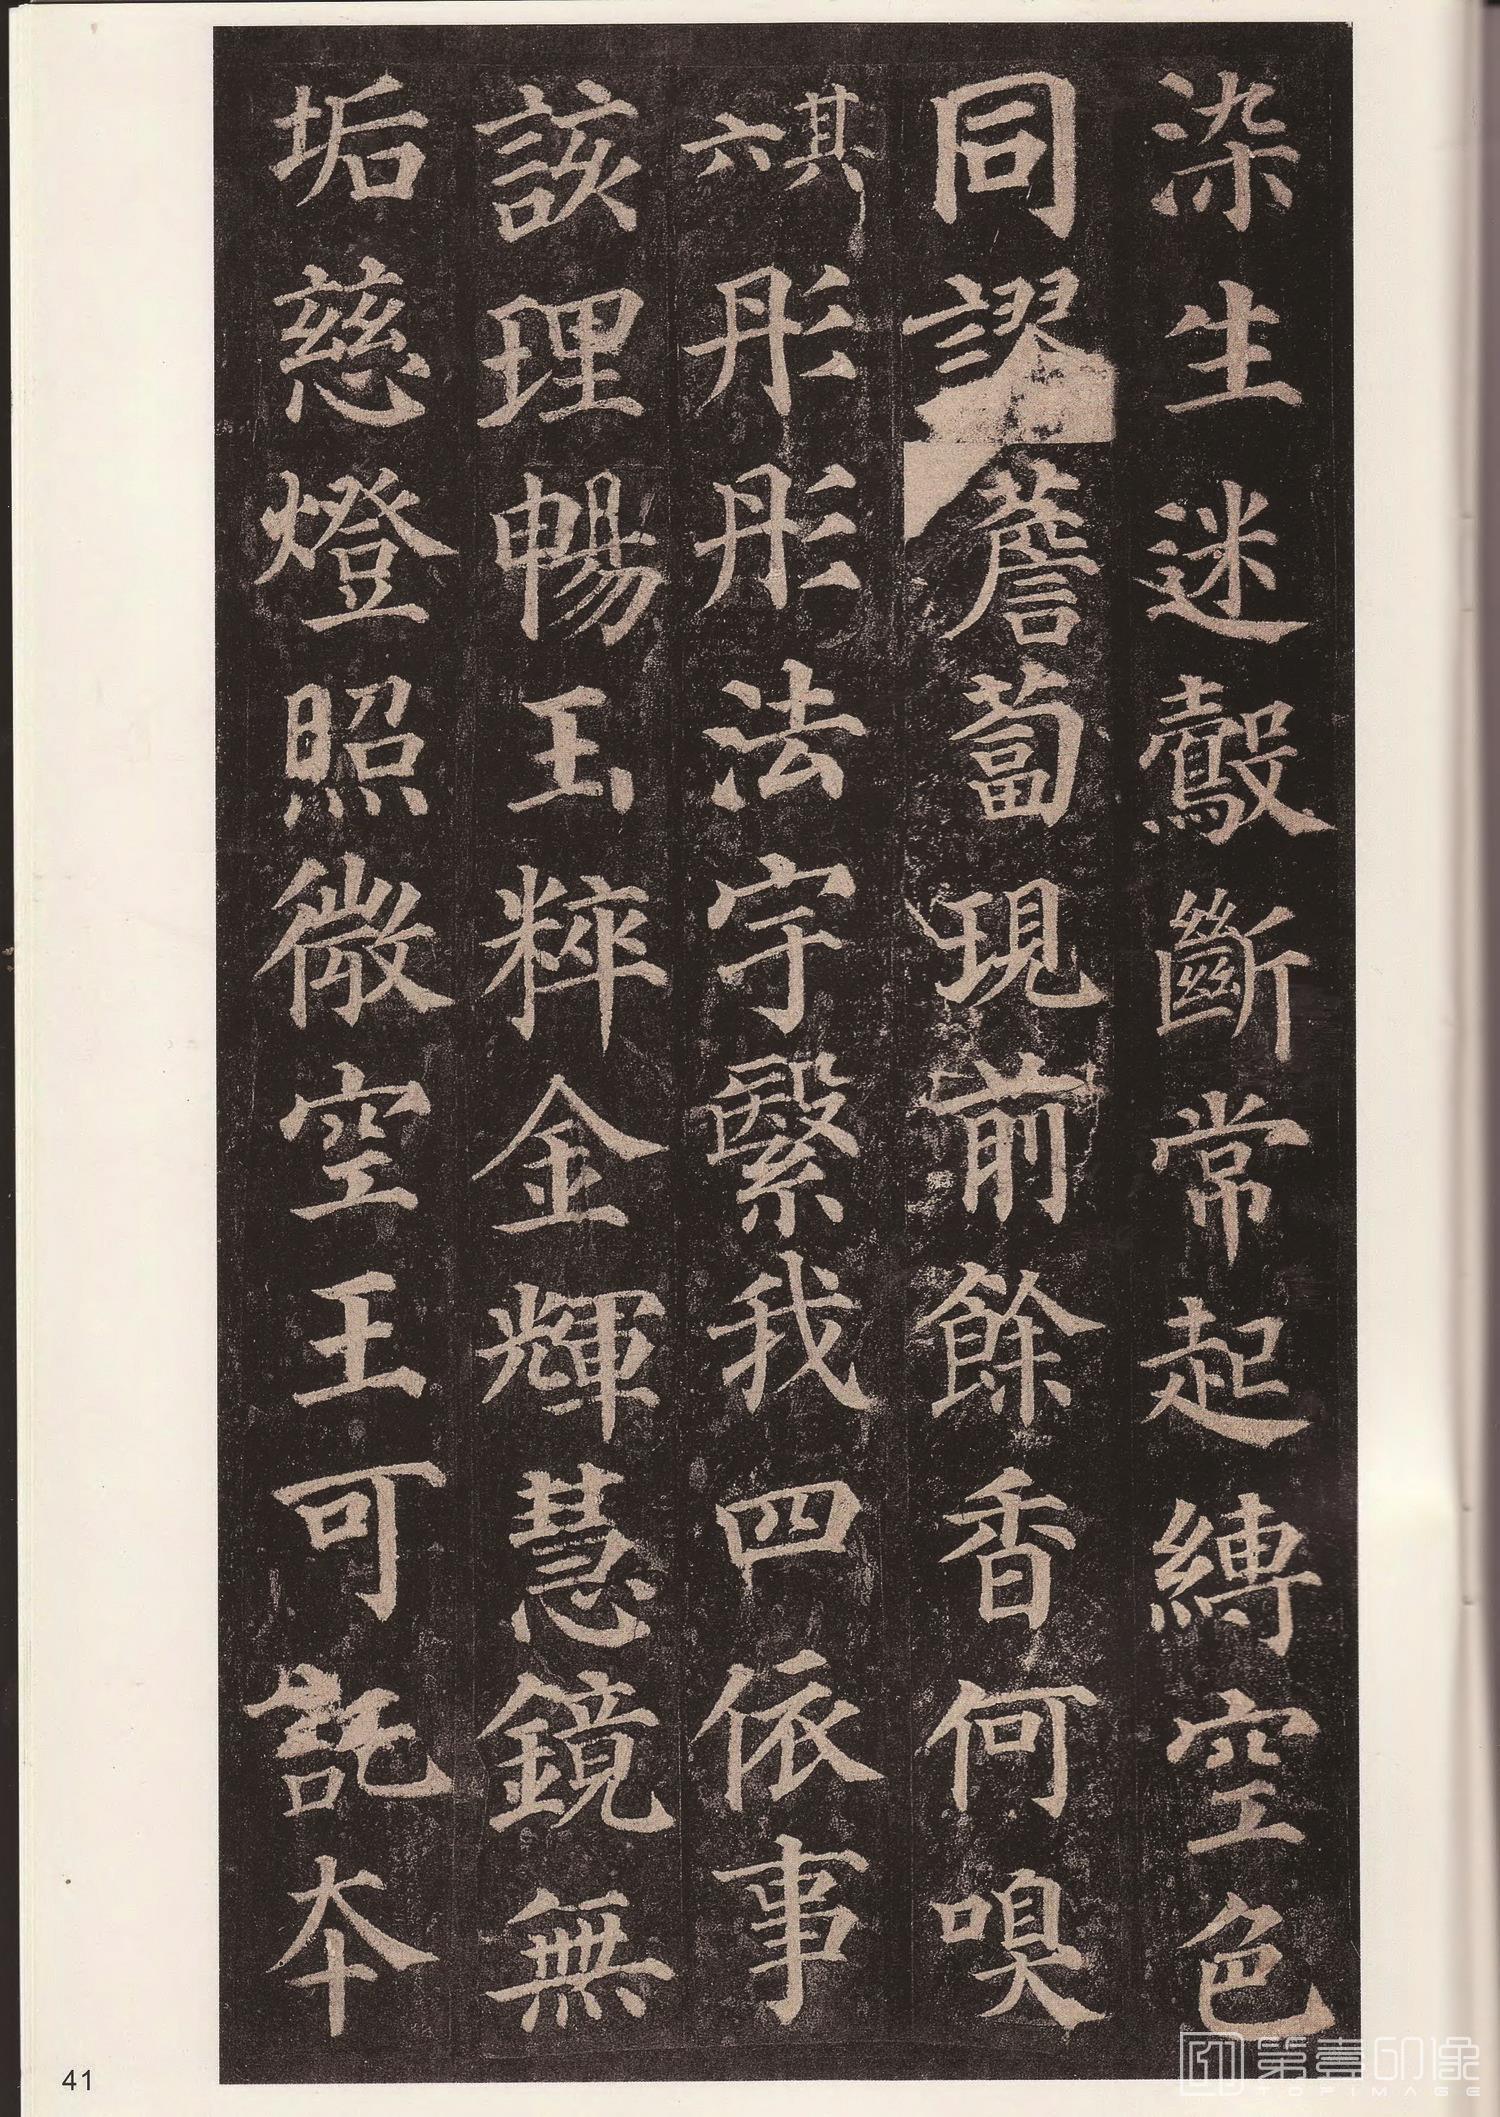 染生迷鷇斷常起縛空色
同謬薝蔔現前餘香何嗅
其六彤彤法宇繄我四依事
該理暢玉粹金輝慧鏡無
垢慈燈照微空王可託本
41
第壹印像
TOPIMAGE